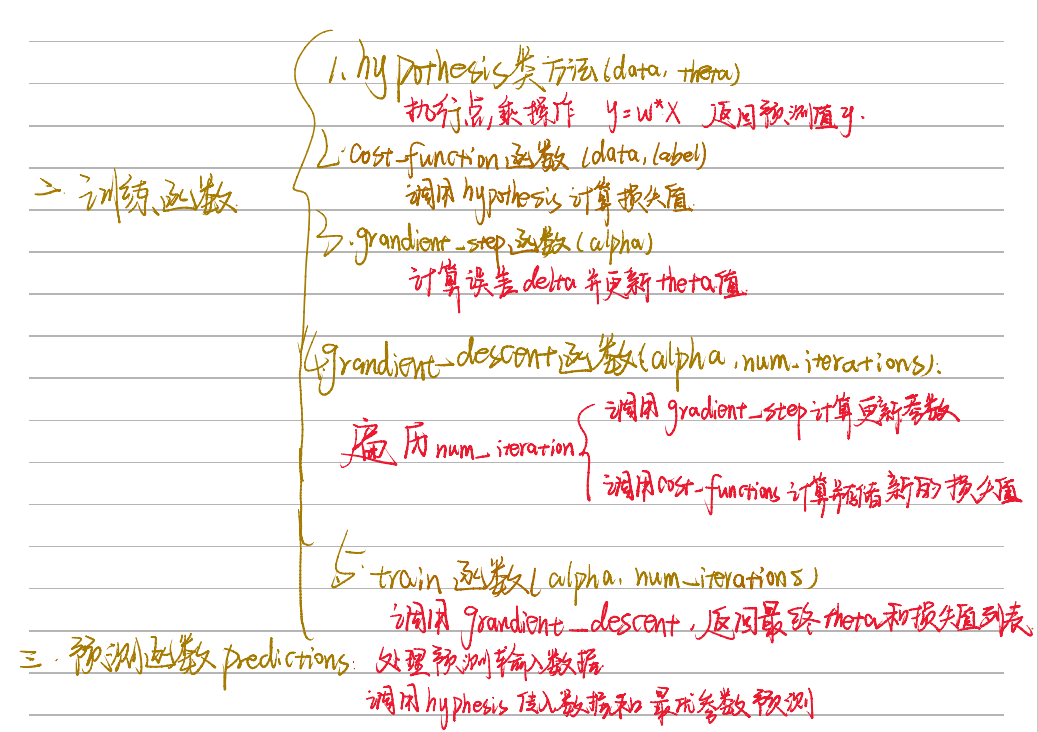 1. hypothesis类方法(data, theta)
执行点乘操作 y=w*X 返回预测值y.
2. cost_function函数(data, label)
调用hypothesis计算损失值
二. 训练函数
3. grandient_step函数(alpha)
计算误差delta并更新theta值
4. grandient_descent函数(alpha, num_iterations).
调用gradient_step计算更新参数
遍历num_iteration
调用cost_functions计算并存储新的损失值
5. train函数(alpha, num_iterations)
调用grandient_descent, 返回最终theta和损失值列表
三. 预测函数predictions: 处理预测输入数据
调用hyphesis传入数据和最优参数预测